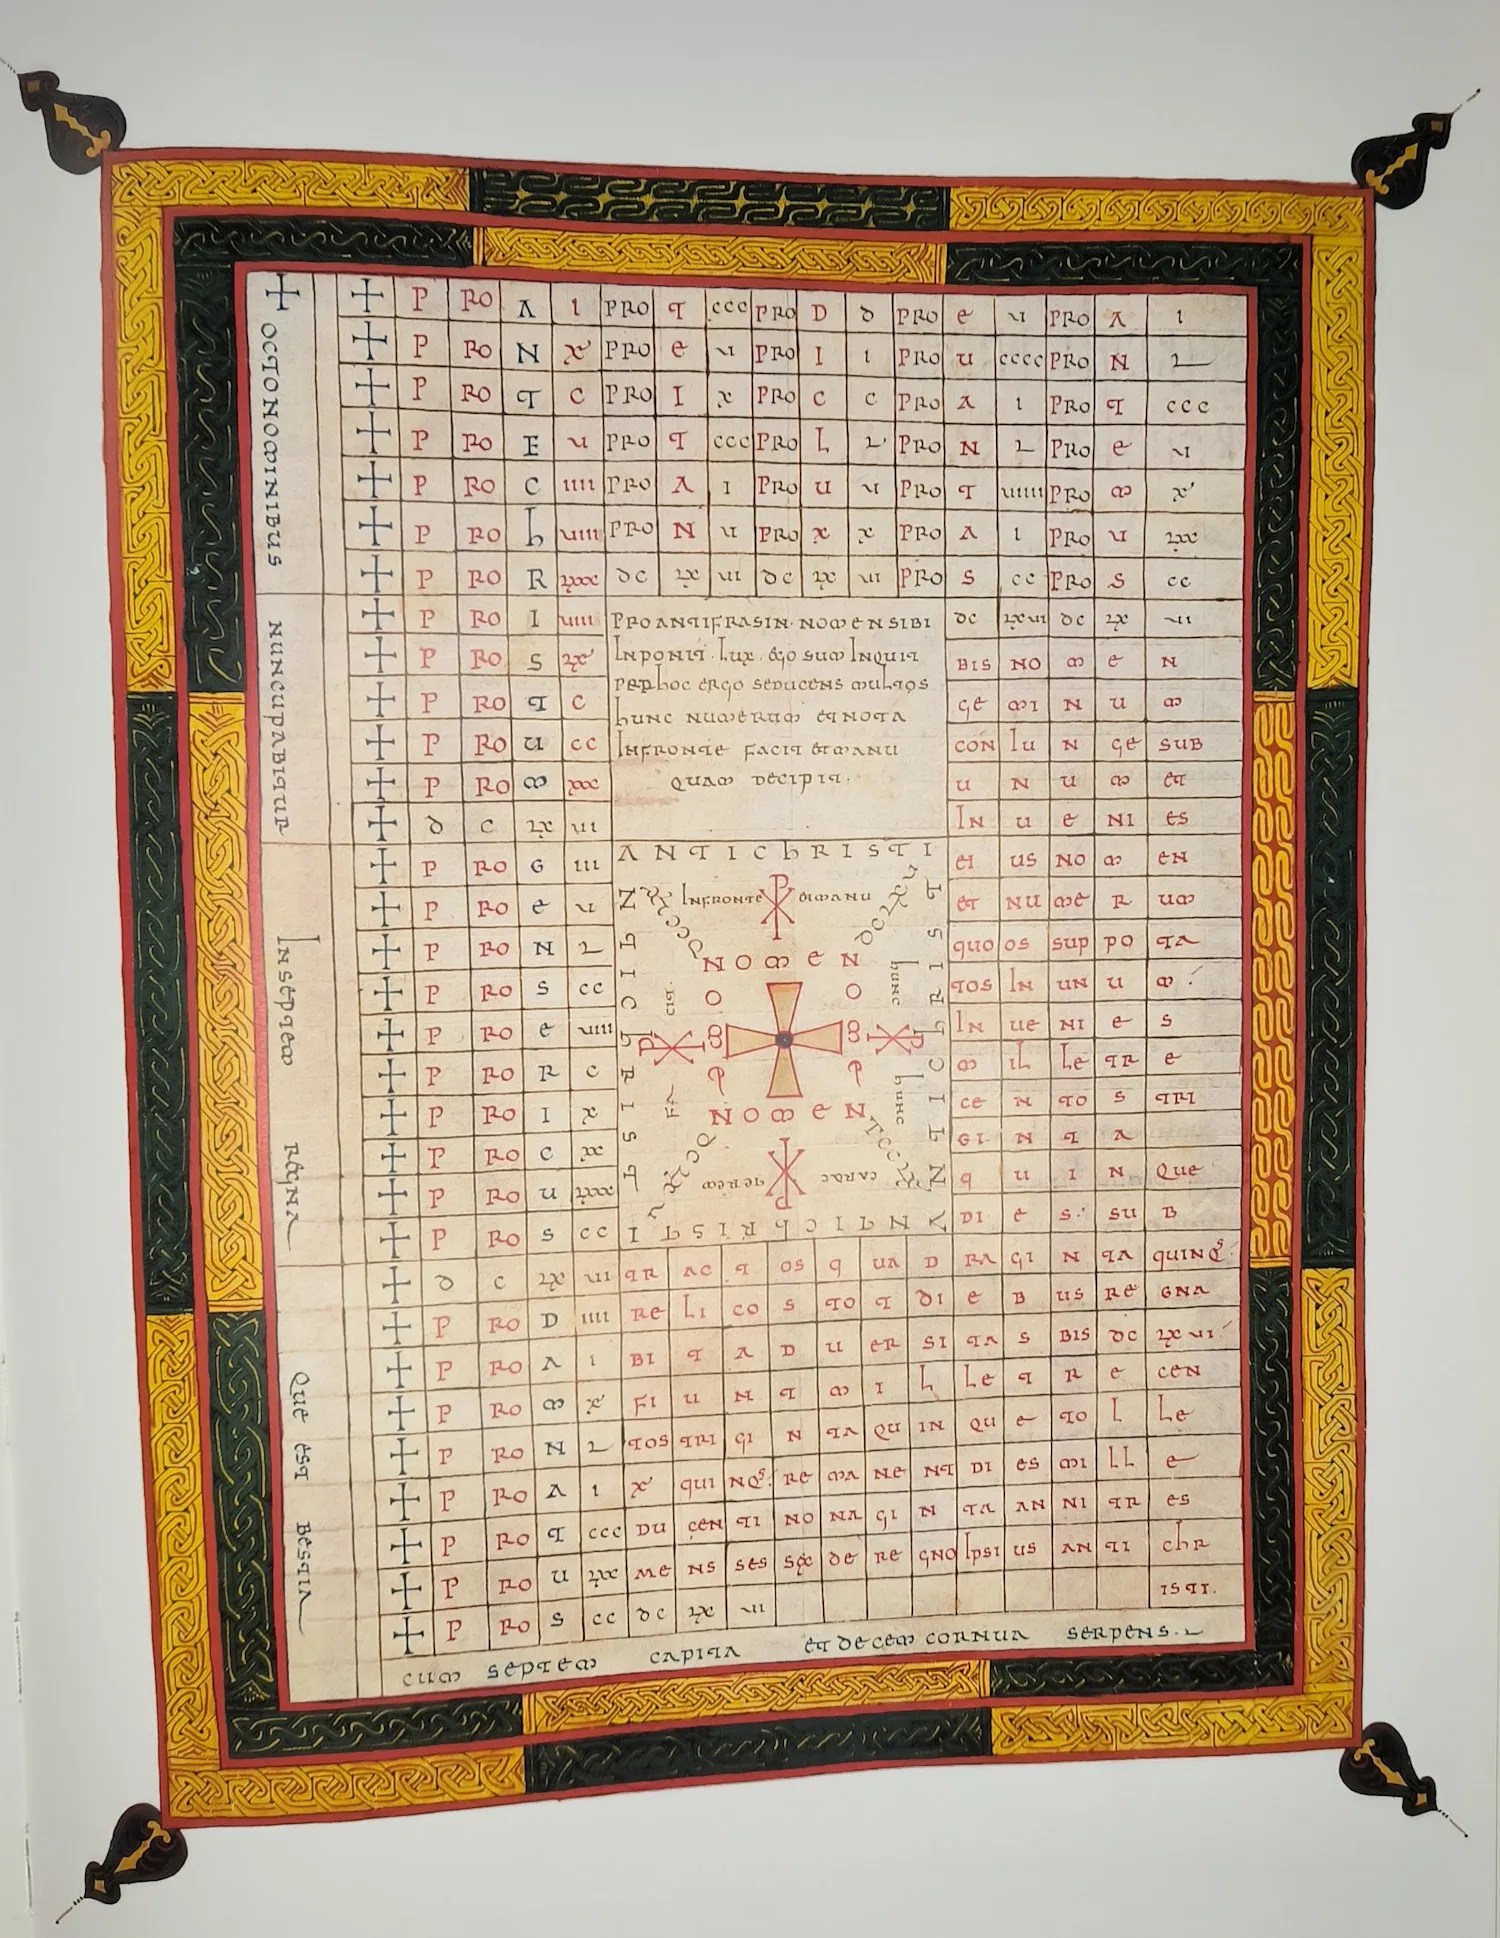 OCTO NOMINIBUS
NUNCUPABITUR
IN SEPTEM
REGNA
QUE EST BESTIA
P RO A I PRO T CCC PRO D D PRO E V PRO A I
P RO N X PRO E V PRO I I PRO U CCCC PRO N L
P RO T C PRO I X PRO C C PRO A I PRO T CCC
P RO E V PRO T CCC PRO L L PRO N L PRO E V
P RO C IIII PRO A I PRO U V PRO T VIIII PRO M X
P RO h VIIII PRO N V PRO X X PRO A I PRO U LXX
P RO R LXXX DC LX VI DC LX VI PRO S CC PRO S CC
P RO I VIIII
DC LXVI DC LX VI
P RO S LX
BIS NO M E N
P RO T C
GE MI N U M
P RO U CC
CON IU N GE SUB
P RO M XXX
U N U M ET
D C LX VI
IN U E NI ES
PRO ANTIFRASIN NOMEN SIBI
INPONIT. LUX. EGO SUM INQUIT
PER hOC ERGO SEDUCENS MULTOS
hUNC NUMERUM ET NOTA
IN FRONTE FACIT ET MANU
QUAM DECIPIT.
P RO G III
EI US NO M EN
P RO E V
ET NU ME R UM
P RO N L
QUO OS SUP PO TA
P RO S CC
TOS IN UN U M
P RO E VIIII
IN UE NI E S
P RO R C
M IL LE TR E
P RO I X
CE N TO S TRI
P RO C XX
GI N T A
P RO U LXXXX
Q U I N QUE
P RO S CC
DI E S SU B
ANTIChRISTI
ANTIChRISTI
ANTIChRISTI
ANTIChRISTZ
IN FRONTE ET MANU
NOMEN
hUNC
hUNC
NOMEN
CARAC
TEREM
D C LX VI TR AC T OS Q UA D RA GI N TA QUINQS
P RO D IIII RE LI CO S TO T DI E B US RE GNA
P RO A I BI T A D U ER SI TA S BIS DC LX VI
P RO M X FI U N T M I L LE T R E CEN
P RO N L TOS TRI GI N TA QU IN QU E TO L LE
P RO A I X QUI NQS RE MA NE NT DI ES MI LL E
P RO T CCC DU CEN TI NO NA GI N TA AN NI TR ES
P RO U LXX ME NS SES SEX DE RE GNO IPSI US AN TI ChR
P RO S CC DC LX VI ISTI.
CUM SEPTEM CAPITA ET DECEM CORNUA SERPENS.